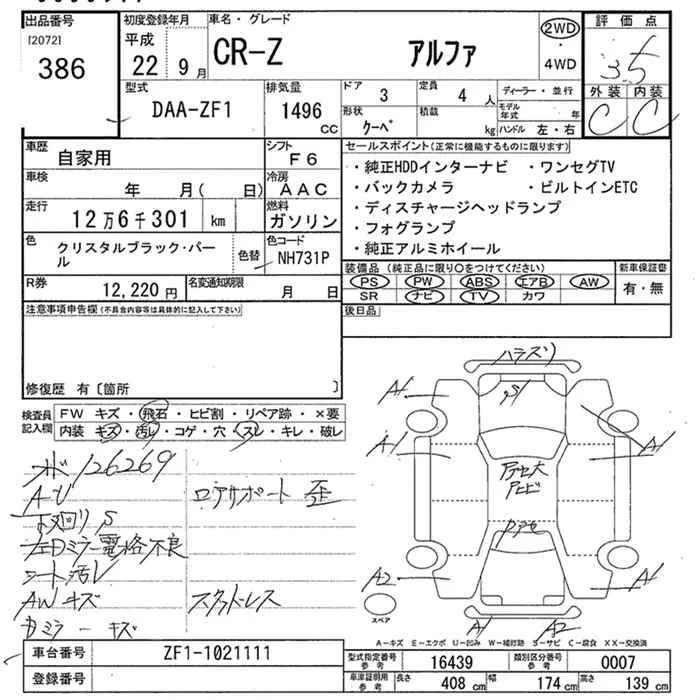 出品番号
[2072]
386
初度登録年月
平成
22 9 月
車名・グレード
CR-Z アルファ
2WD
・
4WD
評価点
3.5
外装 内装
C C
型式
DAA-ZF1
排気量
1496
CC
ドア 3
定員 4 人
ディーラー・並行
モデル年式 年
形状 クーペ
積載 kg
ハンドル 左・右
車歴
自家用
シフト
F6
車検
年 月( 日)
冷房
AAC
走行
12万6千301 km
燃料
ガソリン
色
クリスタルブラック・パール
色替
色コード
NH731P
R券
12,220 円
名変通知期限
月 日
セールスポイント(正常に機能するものに限ります)
・純正HDDインターナビ ・ワンセグTV
・バックカメラ ・ビルトインETC
・ディスチャージヘッドランプ
・フォグランプ
・純正アルミホイール
装備品(純正品に限り○をつけてください)
新車保証書
PS PW ABS エアB AW
SR ナビ TV カワ
有・無
後日品
注意事項申告欄(不具合内容等は具体的に記入して下さい)
修復歴 有〔箇所 〕
検査員
記入欄
FW キズ・飛石・ヒビ割・リペア跡・×要
内装 キズ・汚レ・コゲ・穴・スレ・キレ・破レ
126269
ロアサポート 歪
下廻り S
左Dミラー電格不良
シート汚レ
AWキズ スタッドレス
ミラーキズ
ハラズリ
S1
A1
A1
A1
A1
アセ大
アヒビ
アセ
A2
A1
スペア
A1 A2
A－キズ E－エクボ U－凹み W－補修跡 S－サビ C－腐食 XX－交換済
車台番号
ZF1-1021111
登録番号
型式指定番号
参考
16439
類別区分番号
参考
0007
車検証明用
参考
長さ 408 cm
幅 174 cm
高さ 139 cm